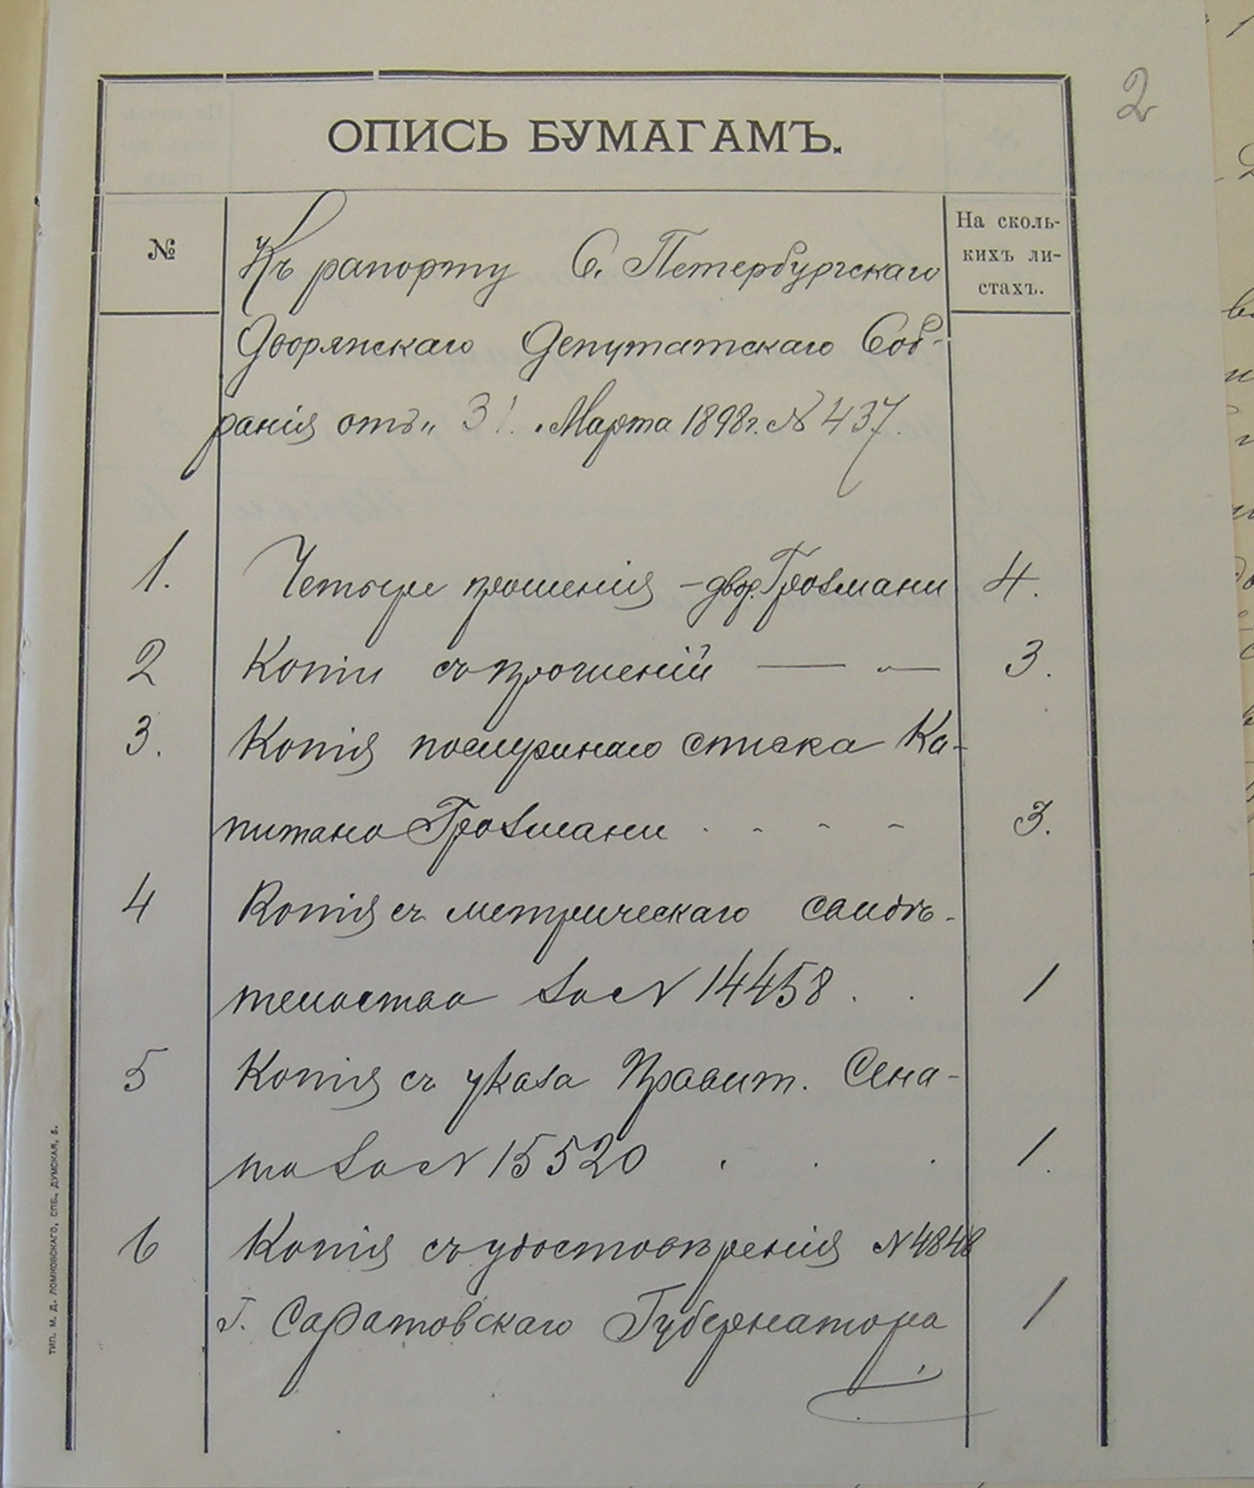 2
ОПИСЬ БУМАГАМЪ.
№
Къ рапорту С. Петербургскаго
На сколь-
кихъ ли-
стахъ.
Дворянскаго Депутатскаго Соб-
ранія отъ „ 31. „ Марта 1898 г. № 437.
1. Четыре прошенія – двор. Гротмани 4.
2 Копіи съ прошеній — „ — 3.
3. Копія послужнаго списка Ка-
питана Гротмани . - - - 3.
4 Копія съ метрическаго свидѣ-
тельства за № 14458 . . 1
5 Копія съ указа Правит. Сена-
та за № 15520 . . . 1.
6 Копія съ удостовѣренія № 4848
Г. Саратовскаго Губернатора 1
ТИП. М. Д. ЛОМКОВСКАГО, СПБ., ДУМСКАЯ, 5.